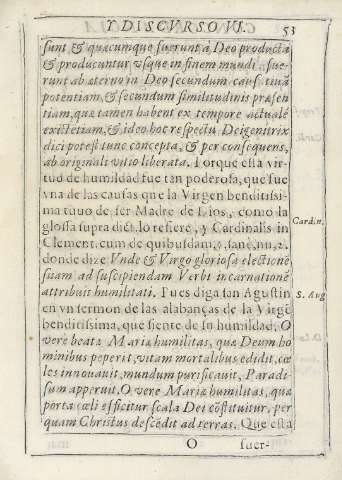 Y DISCVRSO VI. 53
sunt & quæcumque fuerunt a Deo producta
& producuntur vsque in finem mundi, fue-
runt ab æterno in Deo secundum causatiuã
potentiam, & secundum similitudinis præsen
tiam, quæ tamen habent ex tempore actualẽ
existẽtiam, & ideo hoc respectu Dei genitrix
dici potest tunc concepta, & per consequens,
ab originali vitio liberata. Porque esta vir-
tud de humildad fue tan poderosa, que fue
vna de las causas que la Virgen benditissi-
ma tuuo de ser Madre de Dios, como la
glossa supra dict. lo refiere, y Cardinalis in
Clement. cum de quibusdam, §. sane, nu. 2.
donde dize Vnde & Virgo gloriosa electionẽ
suam ad suscipiendam Verbi incarnationẽ
attribuit humilitati. Pues diga san Agustin
en vn sermon de las alabanças de la Virgẽ
benditissima, que siente de su humildad, O
vere beata Mariæ humilitas, quæ Deum ho
minibus peperit, vitam mortalibus edidit, cæ
les innouauit, mundum purificauit, Paradi
sum apperuit. O vere Mariæ humilitas, quæ
porta cœli efficitur scala Dei cõstituitur, per
quam Christus descẽdit ad terras. Que esta
O fuer-
Card. n.
S. Aug